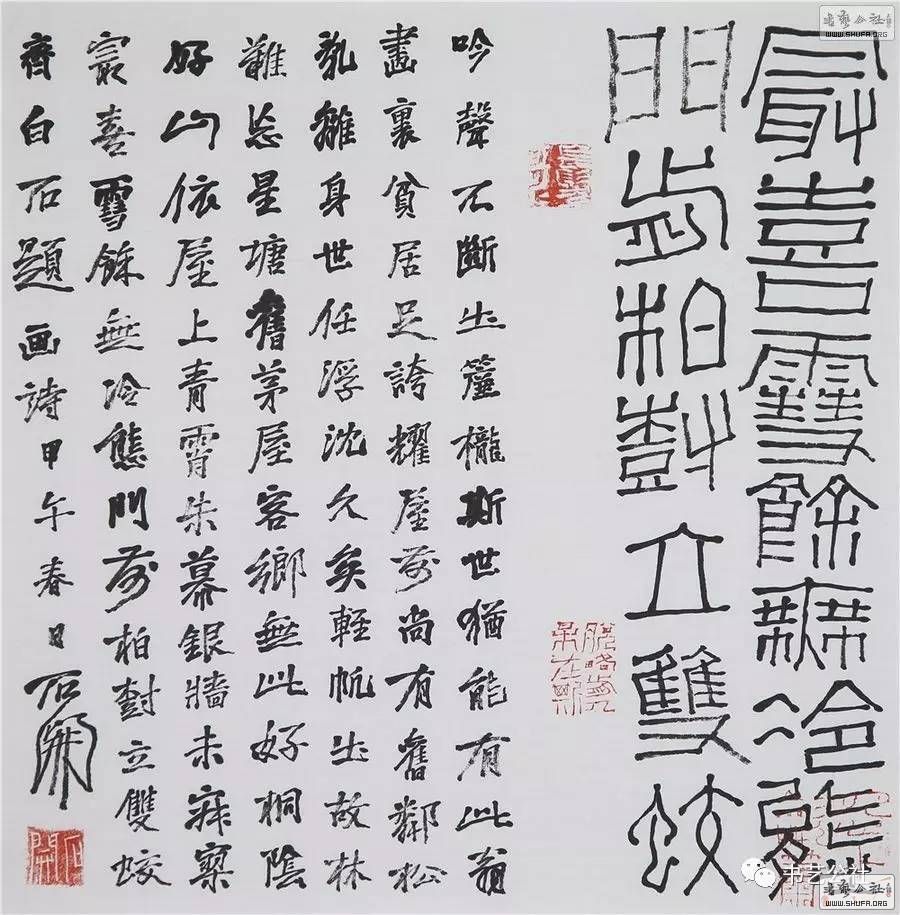 書藝公社
WWW.SHUFA.ORG
最喜雪餘無冷態
門前柏尌立雙蛟
吟聲不斷出簾櫳斯世猶能有此翁
畫裏貧居足誇耀屋前尚有舊鄰松
亂離身世任浮沈久矣輕帆出故林
難忘星塘舊茅屋客鄉無此好桐陰
好山依屋上青霄朱幕銀牆未寂寥
最喜雪餘無冷態門前柏尌立雙蛟
齊白石題画詩甲午春日石開
石開
书艺公社
書藝公社
WWW.SHUFA.ORG